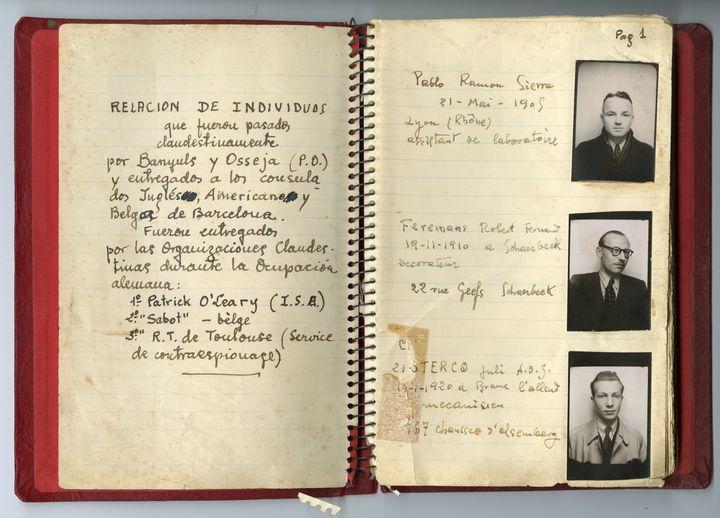 RELACION DE INDIVIDUOS
que fueron pasados
clandestinamente
por Banyuls y Osseja (P.O.)
y entregados a los consula
dos Inglés, Americano y
Belga de Barcelona.
Fueron entregados
por las Organizaciones Clandes-
tinas durante la Ocupación
alemana:
1º Patrick O'Leary (I.S.)
2º "Sabot" – bèlge
3º R.T. de Toulouse (Service
de contraespionage)
Pag 1
Pablo Ramon Sierra
21 - Mai - 1905
Lyon (Rhône)
assistant de laboratoire
Feremans Robert Fernand
19-11-1910 a Schaerbeek
Decorateur
22 rue Geefs Schaerbeek
STERCQ Juli A.D.G.
1920 a Braine l'alleud
mecanicien
767 chaussée d'alsemberg